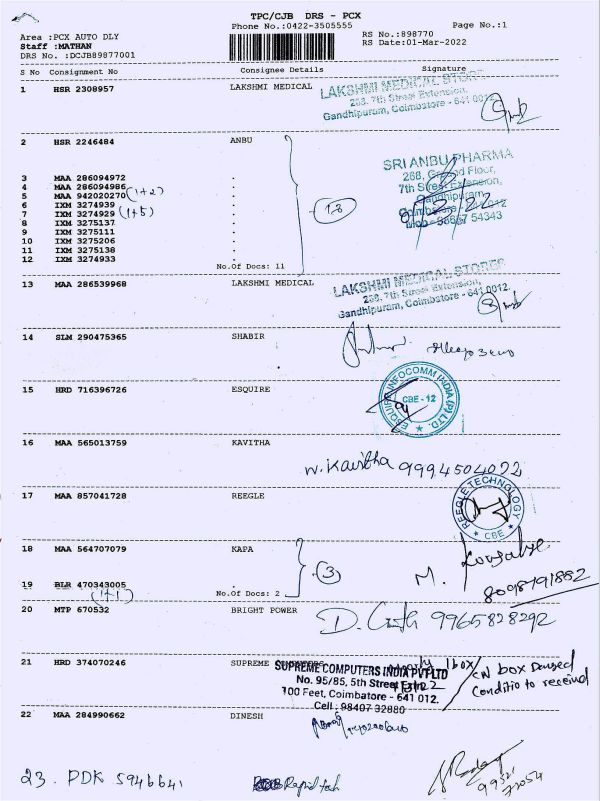 TPC/CJB DRS - PCX
Phone No.:0422-3505555 Page No.:1
Area :PCX AUTO DLY RS No.:898770
Staff :MATHAN RS Date:01-Mar-2022
DRS No. :DCJB89877001
S No Consignment No Consignee Details Signature
1 HSR 2308957 LAKSHMI MEDICAL
LAKSHMI MEDICAL STORES
268, 7th Street Extension,
Gandhipuram, Coimbatore - 641 0012.
2 HSR 2246484 ANBU
SRI ANBU PHARMA
268, Ground Floor,
7th Street Extension,
Gandhipuram,
Coimbatore
3 MAA 286094972 .
4 MAA 286094986 .
5 MAA 942020270 (1+2) .
6 IXM 3274939 .
7 IXM 3274929 (1+5) .
8 IXM 3275137 .
9 IXM 3275111 .
10 IXM 3275206 .
11 IXM 3275138 .
12 IXM 3274933 .
No.Of Docs: 11
13 MAA 286539968 LAKSHMI MEDICAL
LAKSHMI MEDICAL STORES
268, 7th Street Extension,
Gandhipuram, Coimbatore - 641 0012.
14 SLM 290475365 SHABIR
15 HRD 716396726 ESQUIRE
ESQUIRE INFOCOMM INDIA (P) LTD.
CBE - 12
16 MAA 565013759 KAVITHA
N. Kavitha 9994504022
17 MAA 857041728 REEGLE
REEGLE TECHNOLOGY
CBE
18 MAA 564707079 KAPA
(3)
M.
8098791882
19 BLR 470343005 .
(1+1) No.Of Docs: 2
20 MTP 670532 BRIGHT POWER
9965828292
21 HRD 374070246 SUPREME
1 box
SUPREME COMPUTERS INDIA PVT LTD
No. 95/85, 5th Street Extn.
100 Feet, Coimbatore - 641 012.
Cell : 98407 32880
box
received
22 MAA 284990662 DINESH
23. PDK 5946641